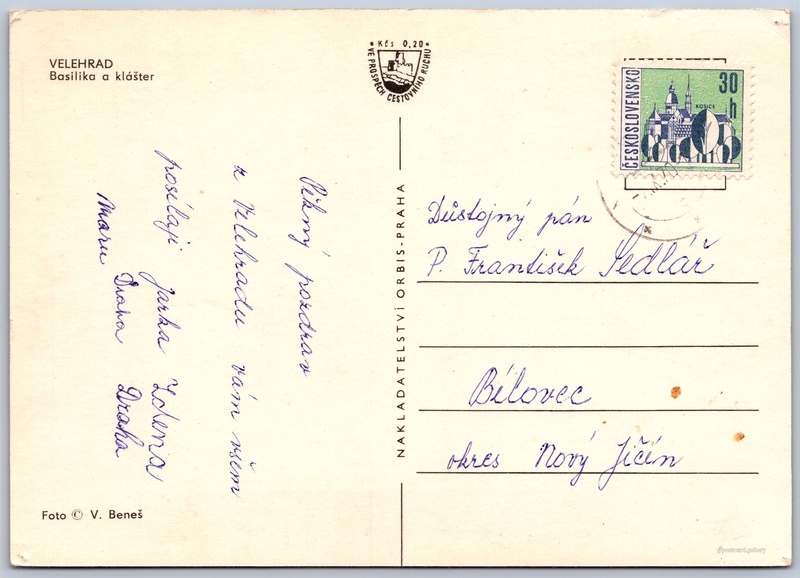 VELEHRAD
Basilika a klášter
Kčs 0,20
VE PROSPĚCH CESTOVNÍHO RUCHU
ČESKOSLOVENSKO
30
h
KOŠICE
Pěkný pozdrav
z Velehradu vám všem
posílají Jarka Zdena
Draha Draha
Důstojný pán
P. František Sedlář
Bílovec
okres Nový Jičín
NAKLADATELSTVÍ ORBIS-PRAHA
Foto © V. Beneš
©postcard.gallery